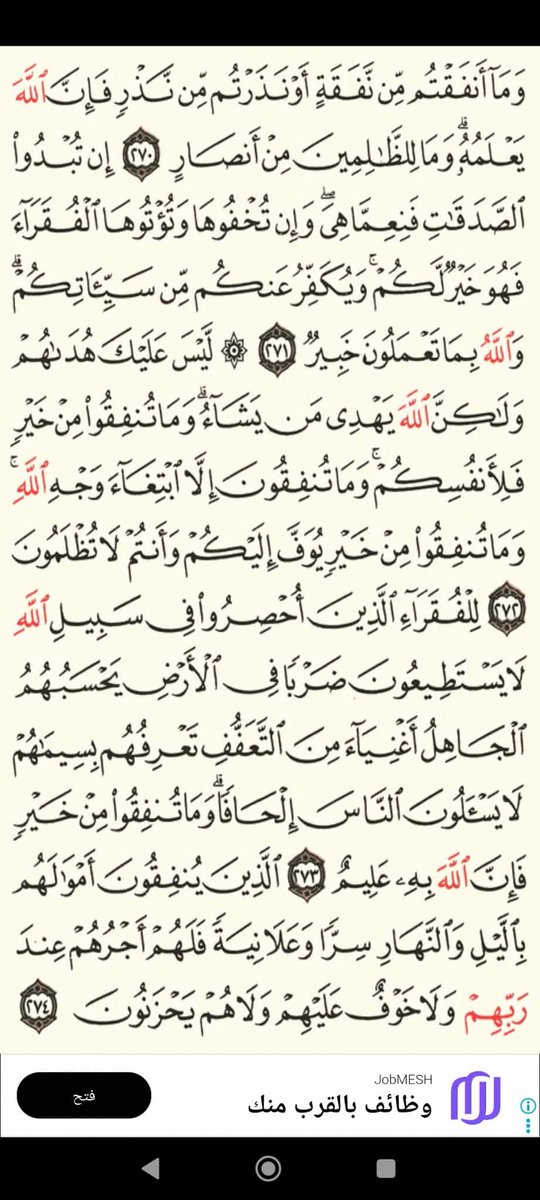 وَمَآ أَنفَقْتُم مِّن نَّفَقَةٍ أَوْ نَذَرْتُم مِّن نَّذْرٍ فَإِنَّ ٱللَّهَ
يَعْلَمُهُۥ ۗ وَمَا لِلظَّٰلِمِينَ مِنْ أَنصَارٍ ٢٧٠ إِن تُبْدُوا۟
ٱلصَّدَقَٰتِ فَنِعِمَّا هِىَ ۖ وَإِن تُخْفُوهَا وَتُؤْتُوهَا ٱلْفُقَرَآءَ
فَهُوَ خَيْرٌ لَّكُمْ ۚ وَيُكَفِّرُ عَنكُم مِّن سَيِّـَٔاتِكُمْ ۗ
وَٱللَّهُ بِمَا تَعْمَلُونَ خَبِيرٌ ٢٧١ ۞ لَّيْسَ عَلَيْكَ هُدَىٰهُمْ
وَلَٰكِنَّ ٱللَّهَ يَهْدِى مَن يَشَآءُ ۗ وَمَا تُنفِقُوا۟ مِنْ خَيْرٍ
فَلِأَنفُسِكُمْ ۚ وَمَا تُنفِقُونَ إِلَّا ٱبْتِغَآءَ وَجْهِ ٱللَّهِ ۚ
وَمَا تُنفِقُوا۟ مِنْ خَيْرٍ يُوَفَّ إِلَيْكُمْ وَأَنتُمْ لَا تُظْلَمُونَ
٢٧٢ لِلْفُقَرَآءِ ٱلَّذِينَ أُحْصِرُوا۟ فِى سَبِيلِ ٱللَّهِ
لَا يَسْتَطِيعُونَ ضَرْبًا فِى ٱلْأَرْضِ يَحْسَبُهُمُ
ٱلْجَاهِلُ أَغْنِيَآءَ مِنَ ٱلتَّعَفُّفِ تَعْرِفُهُم بِسِيمَٰهُمْ
لَا يَسْـَٔلُونَ ٱلنَّاسَ إِلْحَافًا ۗ وَمَا تُنفِقُوا۟ مِنْ خَيْرٍ
فَإِنَّ ٱللَّهَ بِهِۦ عَلِيمٌ ٢٧٣ ٱلَّذِينَ يُنفِقُونَ أَمْوَٰلَهُم
بِٱلَّيْلِ وَٱلنَّهَارِ سِرًّا وَعَلَانِيَةً فَلَهُمْ أَجْرُهُمْ عِندَ
رَبِّهِمْ وَلَا خَوْفٌ عَلَيْهِمْ وَلَا هُمْ يَحْزَنُونَ ٢٧٤
JobMESH
وظائف بالقرب منك
فتح